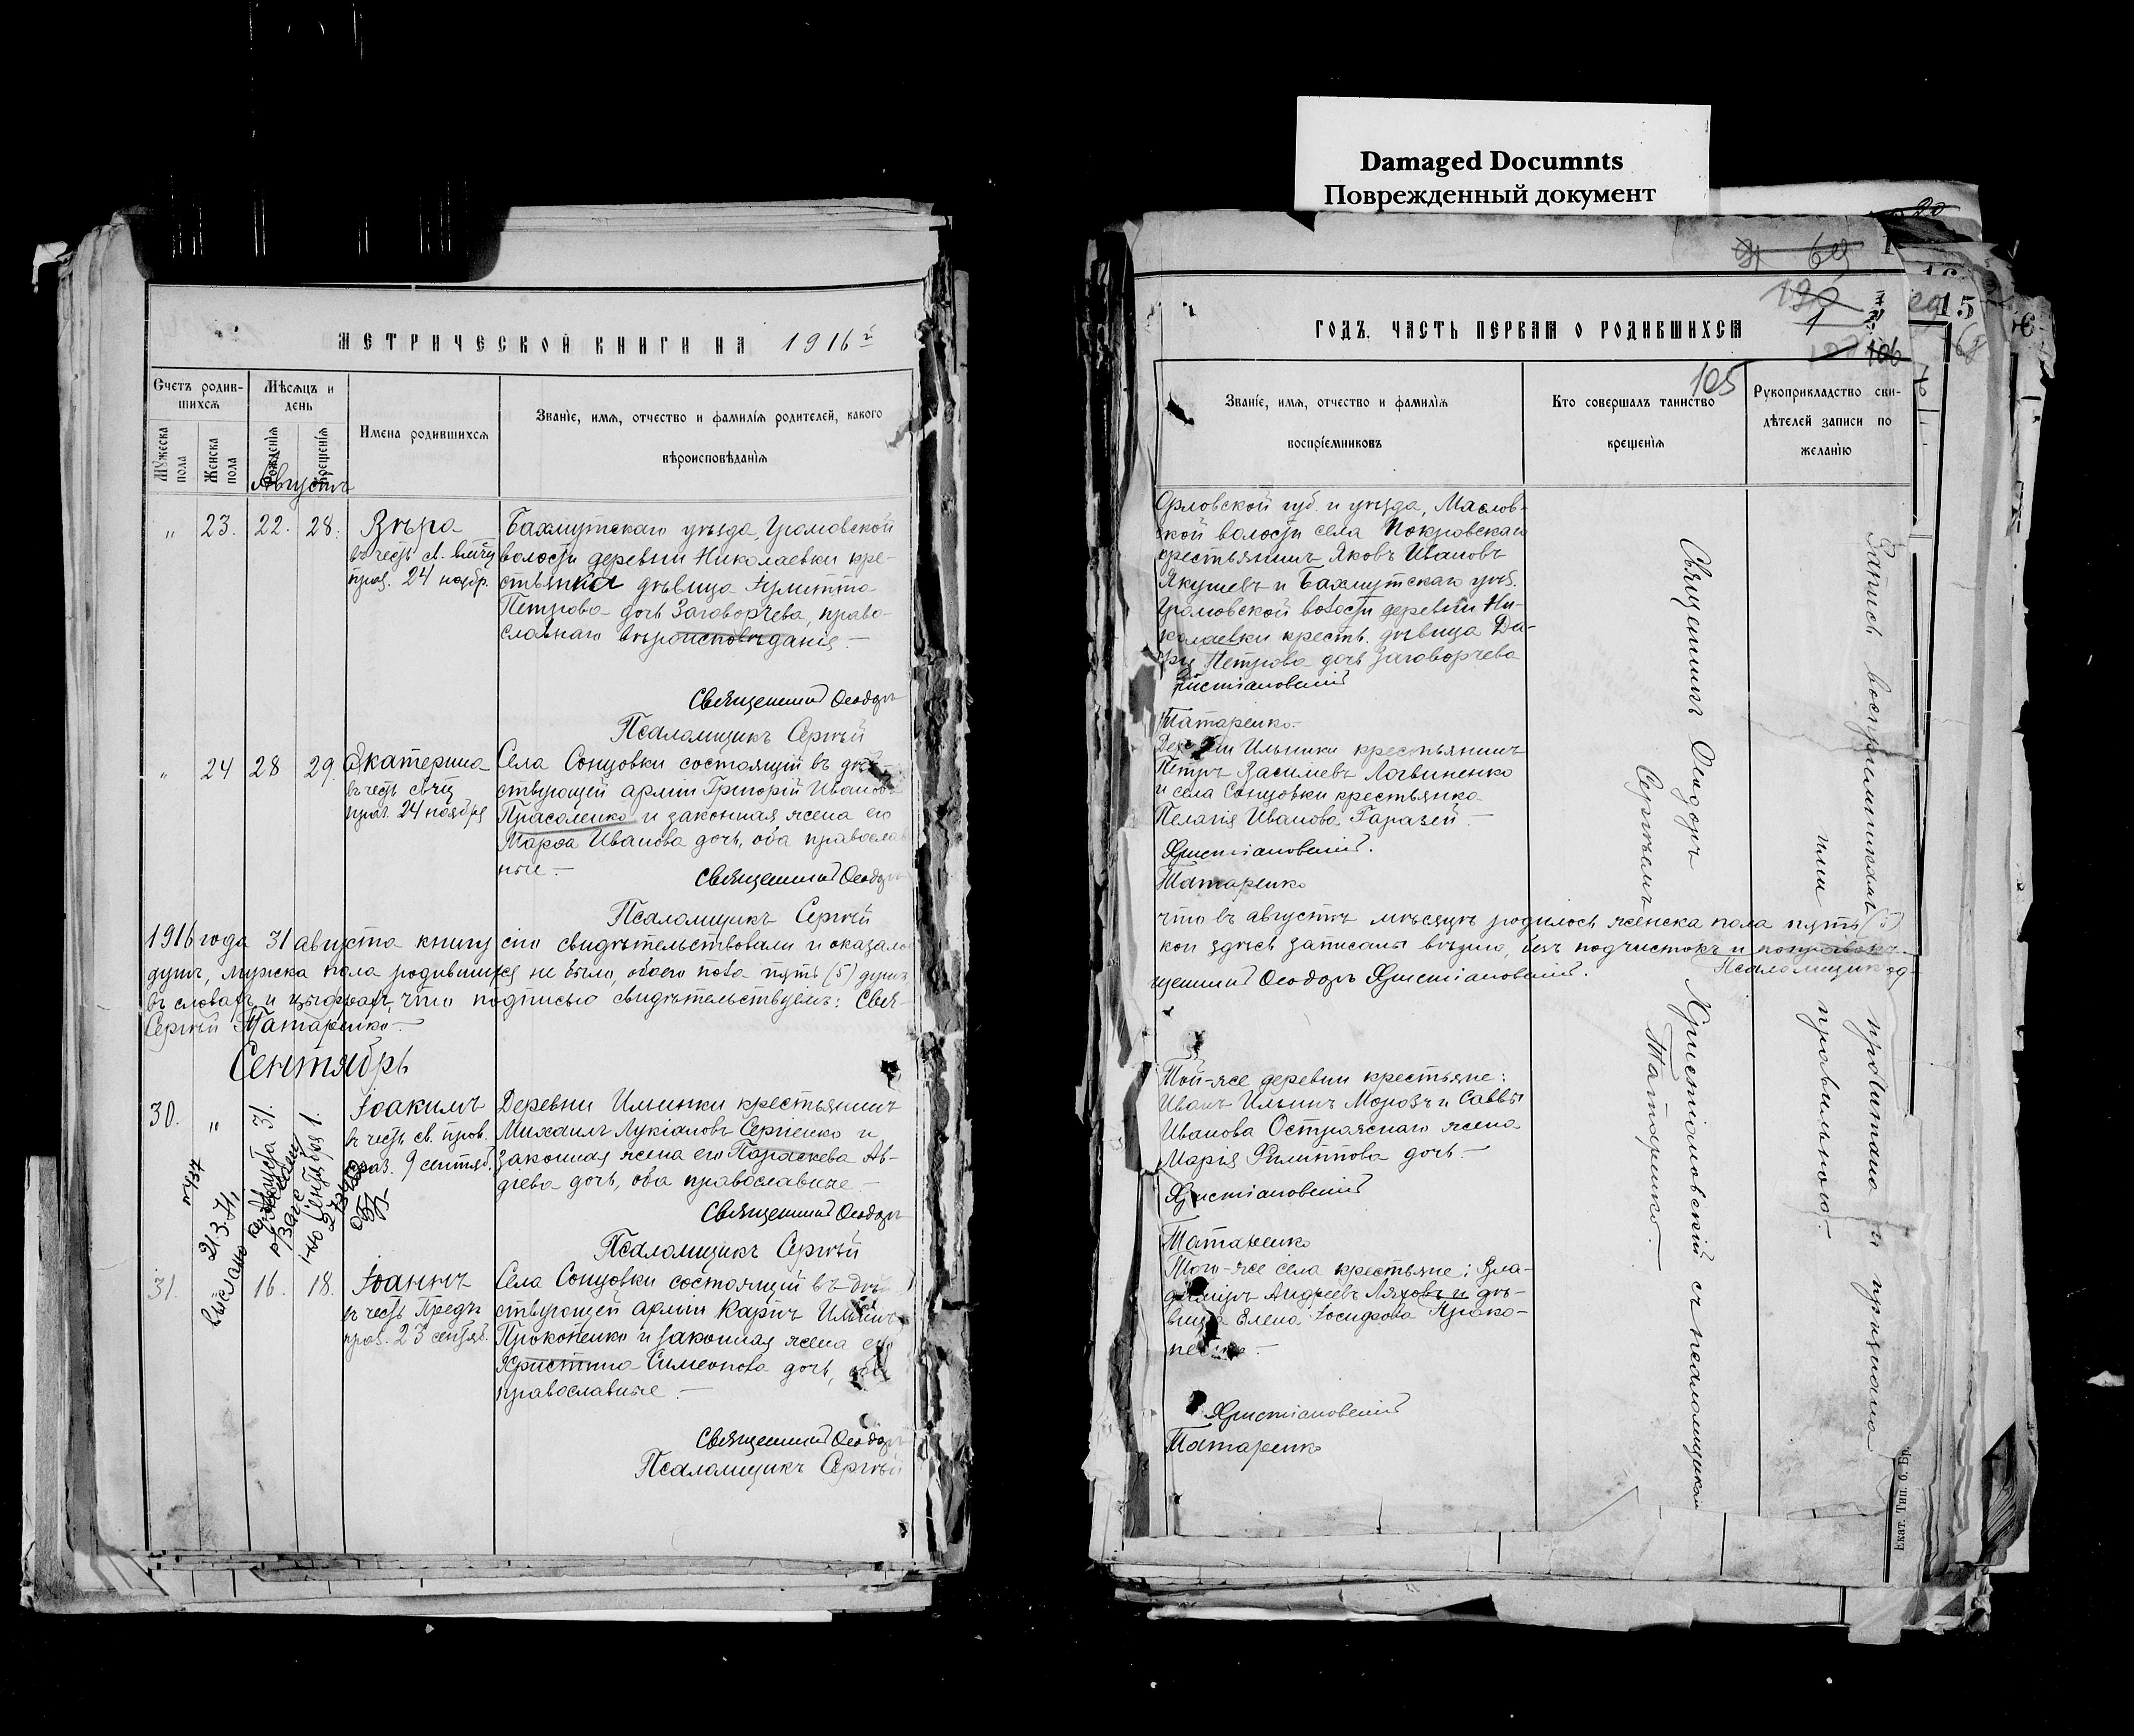 Damaged Documnts
Поврежденный документ
МЕТРИЧЕСКОЙ КНИГИ НА 1916 й
Счетъ родив-
шихся
Мѣсяцъ и
день
Имена родившихся
Званіе, имя, отчество и фамилія родителей, какого
вѣроисповѣданія
Мужеска
пола
Женска
пола
Рожденія
Крещенія
Августъ
" 23. 22. 28.
Вѣра
въ честь св. влмчц
праз. 24 ноябр.
Бахмутскаго уѣзда, Громовской
волости деревни Николаевки кре-
стьянка дѣвица
Петрова дочь Заговорчева, право-
славнаго вѣроисповѣданія.—
Священникъ Ѳеодоръ
Псаломщикъ Сергѣй
" 24 28 29.
Екатерина
въ честь
праз. 24 ноября
Села Сонцовки состоящій въ дѣй-
ствующей арміи Григорій Ивановъ
Прасоленко и законная жена его
Марѳа Иванова дочь, оба православ
ные.—
Священникъ Ѳеодоръ
Псаломщикъ Сергѣй
1916 года 31 августа книгу сію свидѣтельствовали и оказало
душъ, мужска пола родившихся не было, обоего пола пять (5) душъ
въ словахъ и цыфрахъ, что подписью свидѣтельствуемъ: Свя-
Сергѣй Татаренко.—
Сентябрь
30. " Августа 31. Сентября 1.
Іоакимъ
въ честь св. прав.
праз. 9 сентяб.
Деревни Ильинки крестьянинъ
Михаилъ Лукіановъ Сергіенко и
законная жена его Параскева Ав-
дѣева дочь, оба православные.—
Священникъ Ѳеодоръ
Псаломщикъ Сергѣй
21.3.
Выслано
31. 16. 18.
Іоаннъ
въ честь Предт.
праз. 23 сентяб.
Села Сонцовки состоящій въ дѣй
ствующей арміи Карпъ Ильинъ
Прокопенко и законная жена его
Христина Симеонова дочь, оба
православные.—
Священникъ Ѳеодоръ
Псаломщикъ Сергѣй
ГОДЪ. ЧАСТЬ ПЕРВАЯ О РОДИВШИХСЯ
69
106
105
15
Званіе, имя, отчество и фамилія
воспріемниковъ
Кто совершалъ таинство
крещенія
Рукоприкладство сви-
дѣтелей записи по
желанію
Орловской губ. и уѣзда, Маслов-
ской волости села Покровскаго
крестьянинъ Яковъ Ивановъ
Якушевъ и Бахмутскаго уѣз.
Громовской волости деревни Ни-
колаевки крест. дѣвица Да-
рія Петрова дочь Заговорчева
Христіановскій
Татаренко.—
Деревни Ильинки крестьянинъ
Петръ Васильевъ Логвиненко
и села Сонцовки крестьянка
Пелагія Иванова Гаразей.—
Христіановскій.
Татаренко
что въ августѣ мѣсяцѣ родилось женска пола пять (5)
кои здѣсь записаны вѣрно, безъ подчистокъ и поправокъ.
щенникъ Ѳеодоръ Христіановскій. Псаломщикъ
Той-же деревни крестьяне:
Иванъ Ильинъ Морозъ и Саввы
Иванова Остраженаго жена
Марія Филиппова дочь.—
Христіановскій
Татаренко
Того-же села крестьяне: Вла-
диміръ Андреевъ Ляховъ и дѣ-
вица Елена Іосифова Проко-
пенко.—
Христіановскій
Татаренко
Священникъ Ѳеодоръ Христіановскій съ псаломщикомъ
Сергѣемъ Татаренко.—
Запись воспріемниками прочитана и признана
ими правильною.
Екат. Тип. б. Бр.